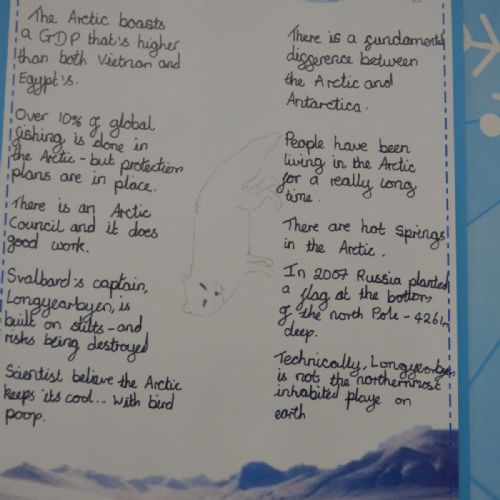 The Arctic boasts
a GDP that's higher
than both Vietnam and
Egypt's.
Over 10% of global
fishing is done in
the Arctic - but protection
plans are in place.
There is an Arctic
Council and it does
good work.
Svalbard's captain,
Longyearbyen, is
built on stilts - and
risks being destroyed
Scientist believe the Arctic
keeps its cool... with bird
poop.
There is a fundamental
difference between
the Arctic and
Antarctica.
People have been
living in the Arctic
for a really long
time.
There are hot Springs
in the Arctic.
In 2007 Russia planted
a flag at the bottom
of the north Pole - 4261m
deep.
Technically, Longyearbyen
is not the northernmost
inhabited playe on
earth